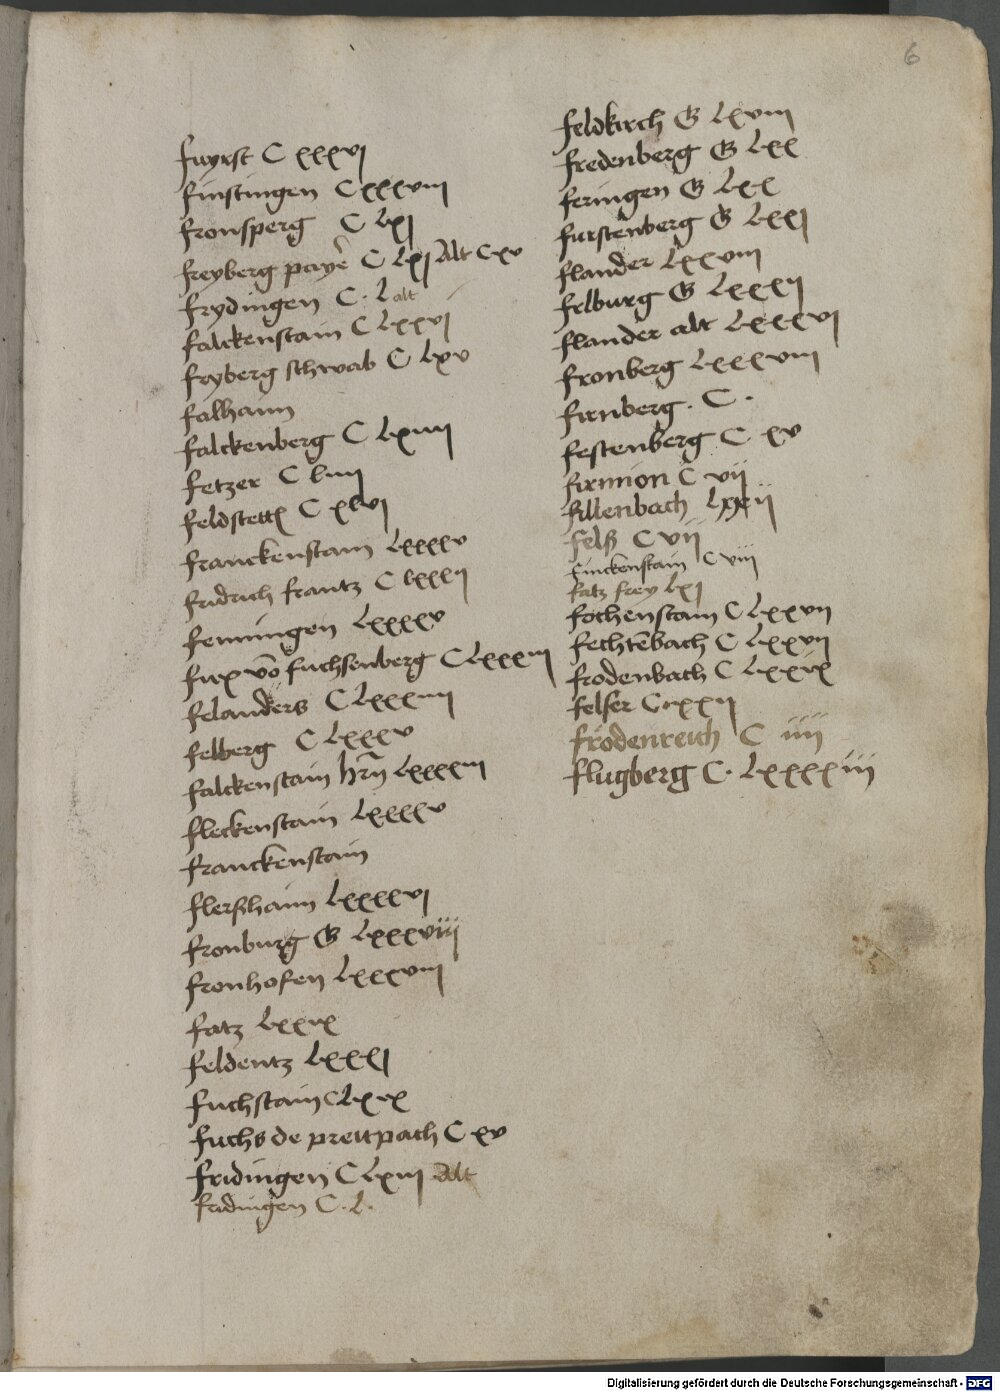 6
fuyrst C xxxvj
finstingen C xxxviij
fronsperg C Lxj
freyberg payr̃ C Lxj Alt C xv
frydingen C. L alt
falckenstain C Lxxvj
fryberg schwab C Lxv
falhaim
falckenberg C Lxiiij
fetzer C Liiij
feldstett C xlvj
franckenstain Lxxxxv
fridrich frantz C Lxxxij
fenningen Lxxxxv
fux võ fuchsenberg C Lxxxiij
felanders C Lxxxiiij
felberg C Lxxxv
falckenstain hrñ Lxxxxiij
fleckenstain Lxxxxv
franckenstain
flerßhaim Lxxxxvj
fronburg G Lxxxviij
fronhofen Lxxxviij
fatz Lxxix
feldentz Lxxxj
fuchstain C Lxix
fuchs de preitpach C xv
fridingen C Lxiij Alt
fridingen C. L.
feldkirch G Lxviij
fredenberg G Lxx
feringen G Lxx
furstenberg G Lxxj
flander Lxxviij
felburg G Lxxxij
flander alt Lxxxxvj
fronberg Lxxxviij
firnberg. C.
festenberg C xv
firmion C vij
fillenbach Lxxij
felß C vij
finckenstain C viij
fatz frey Lxj
fochenstain C Lxxvij
fechtẽbach C Lxxvij
frodenbach C Lxxix
felser C cxxij
frödenreich C iiij
flugberg C. Lxxxxiij
Digitalisierung gefördert durch die Deutsche Forschungsgemeinschaft - DFG